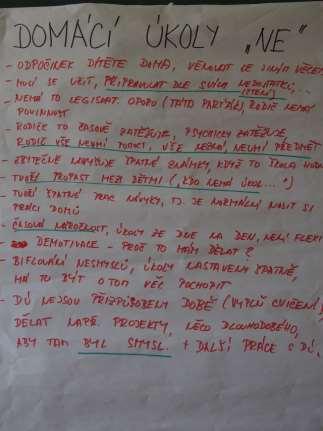 DOMÁCÍ ÚKOLY „NE"
- ODPOČINEK DÍTĚTE DOMA, VĚNOVAT SE JINÝM VĚCEM
- UČIT, PŘIPRAVOVAT DLE SVÝCH NEDOSTATKŮ,
(ČTENÍ)
- NEMÁ TO LEGISLAT. OPORU (TŘÍTO PARTIZÁN), RODIČ NEMÁ
POVINNOST
- RODIČE TO ČASOVĚ ZATĚŽUJE, PSYCHICKY ZATĚŽUJE,
RODIČ VŠE NEUMÍ, VŠE NEUMÍ PŘEDMĚT
- ZBYTEČNĚ ŠPATNÉ ZNÁMKY, KDYŽ TO ŠKOLA
- TVOŘÍ PROPAST MEZI DĚTMI („KDO NEMÁ ÚKOL...")
- TVOŘÍ ŠPATNÉ PRAC. NÁVYKY, TJ. JE NORMÁLNÍ NOSIT SI
PRÁCI DOMŮ
- ČASOVÁ NÁROČNOST, ÚKOLY ZE DNE NA DEN, NENÍ
DEMOTIVACE - PROČ TO MÁM DĚLAT?
- BIFLOVÁNÍ NESMYSLŮ, ÚKOLY NASTAVENY ŠPATNĚ,
MÁ TO BÝT O TOM VĚC POCHOPIT
- DÚ NEJSOU PŘIZPŮSOBENY DOBĚ (VYPLŇ CVIČENÍ),
DĚLAT NAPŘ. PROJEKTY, NĚCO DLOUHODOBÉHO,
ABY TAM BYL SMYSL. + DALŠÍ PRÁCE S DÚ,